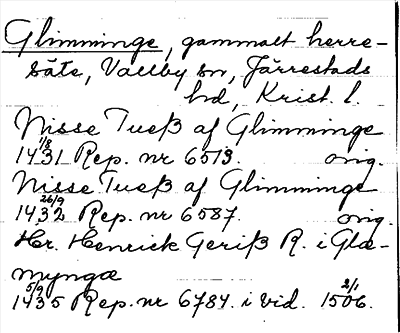 Glimminge, gammalt herre-
säte, Vallby sn, Järrestads
hd, Krist. l.
Nisse Tueß af Glimminge
1431 1/8 Rep. nr 6513. orig.
Nisse Tueß af Glimminge
1432 26/9 Rep. nr 6587. orig.
Hr. Henrick Geriß R. i Glæ-
myngæ
1435 5/9 Rep. nr 6784. i vid. 1506 2/1.